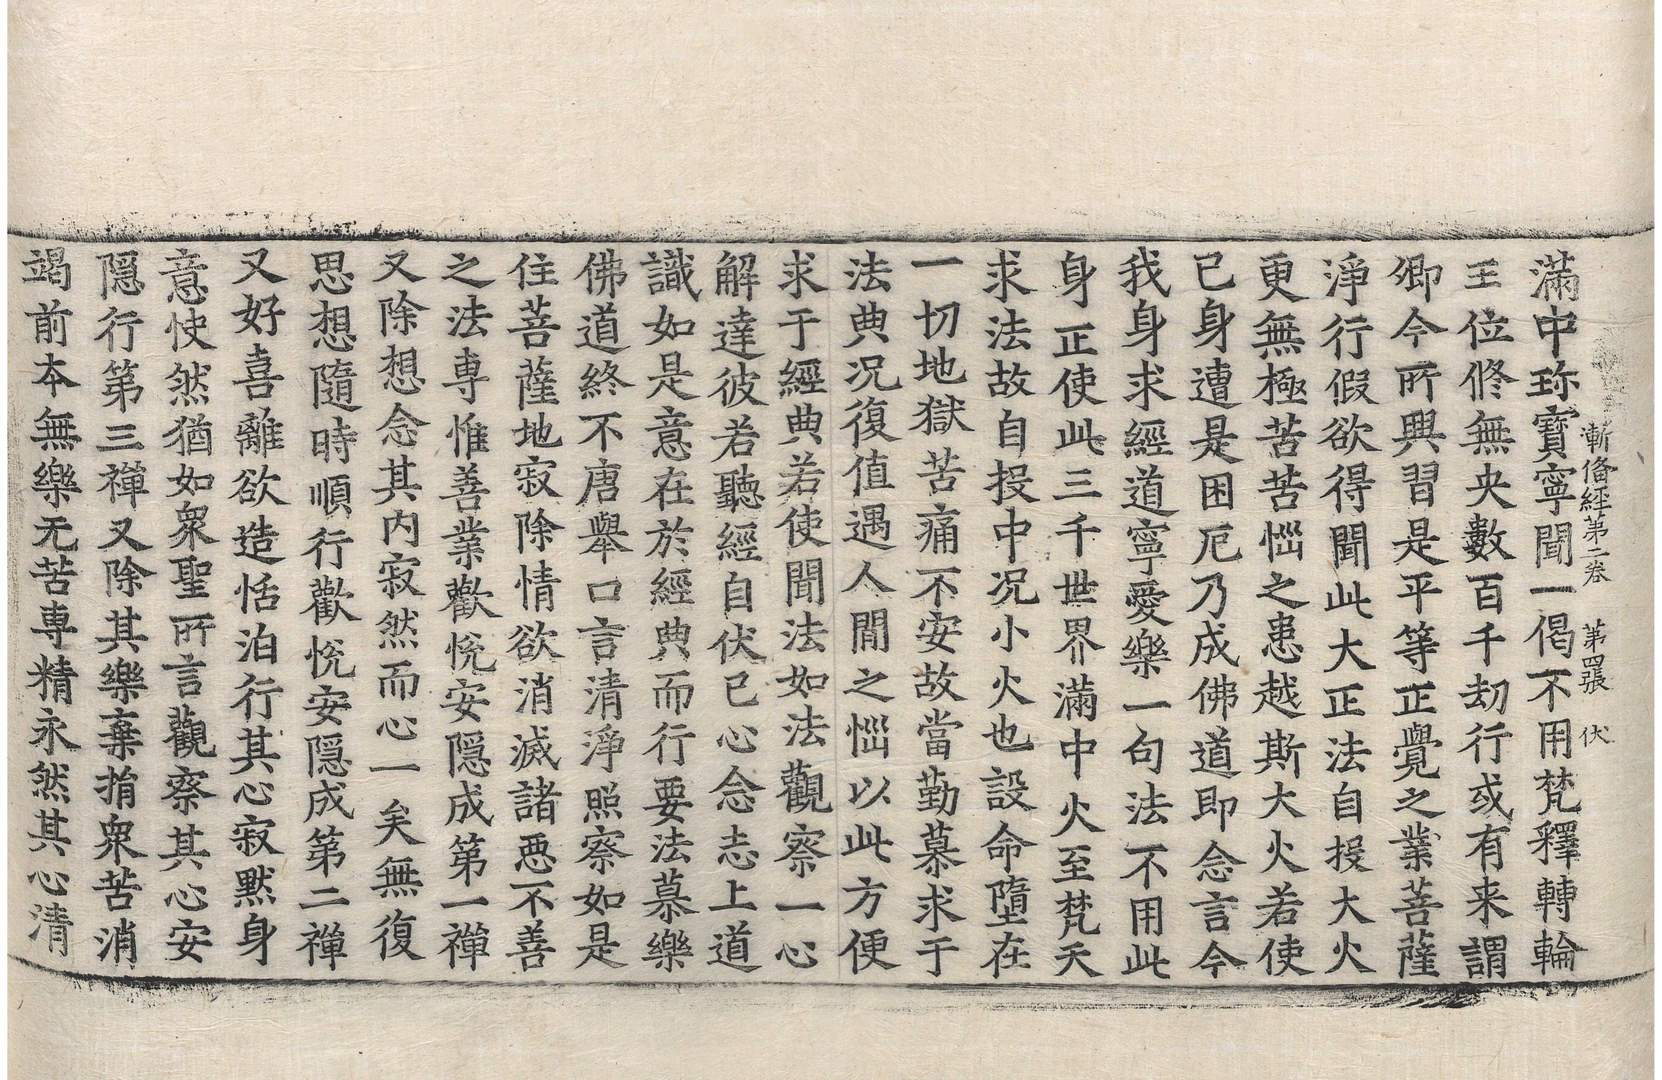 漸俻經第二卷 第四張 伏
滿中珎寶寧聞一偈不用梵釋轉輪
王位修無央數百千劫行或有来謂
卿今所興習是平等正覺之業菩薩
淨行假欲得聞此大正法自投大火
更無極苦苦惱之患越斯大火若使
己身遭是困厄乃成佛道即念言今
我身求經道寧愛樂一句法不用此
身正使此三千世界滿中火至梵天
求法故自投中况小火也設命墮在
一切地獄苦痛不安故當勤慕求于
法典况復值遇人間之惱以此方便
求于經典若使聞法如法觀察一心
解達彼若聽經自伏己心念志上道
識如是意在於經典而行要法慕樂
佛道終不唐舉口言清淨照察如是
住菩薩地寂除情欲消滅諸惡不善
之法專惟善業歡悅安隱成第一禪
又除想念其內寂然而心一矣無復
思想隨時順行歡悅安隱成第二禪
又好喜離欲造恬泊行其心寂默身
意怏然猶如衆聖所言觀察其心安
隱行第三禪又除其樂棄捐衆苦消
竭前本無樂无苦專精永然其心清